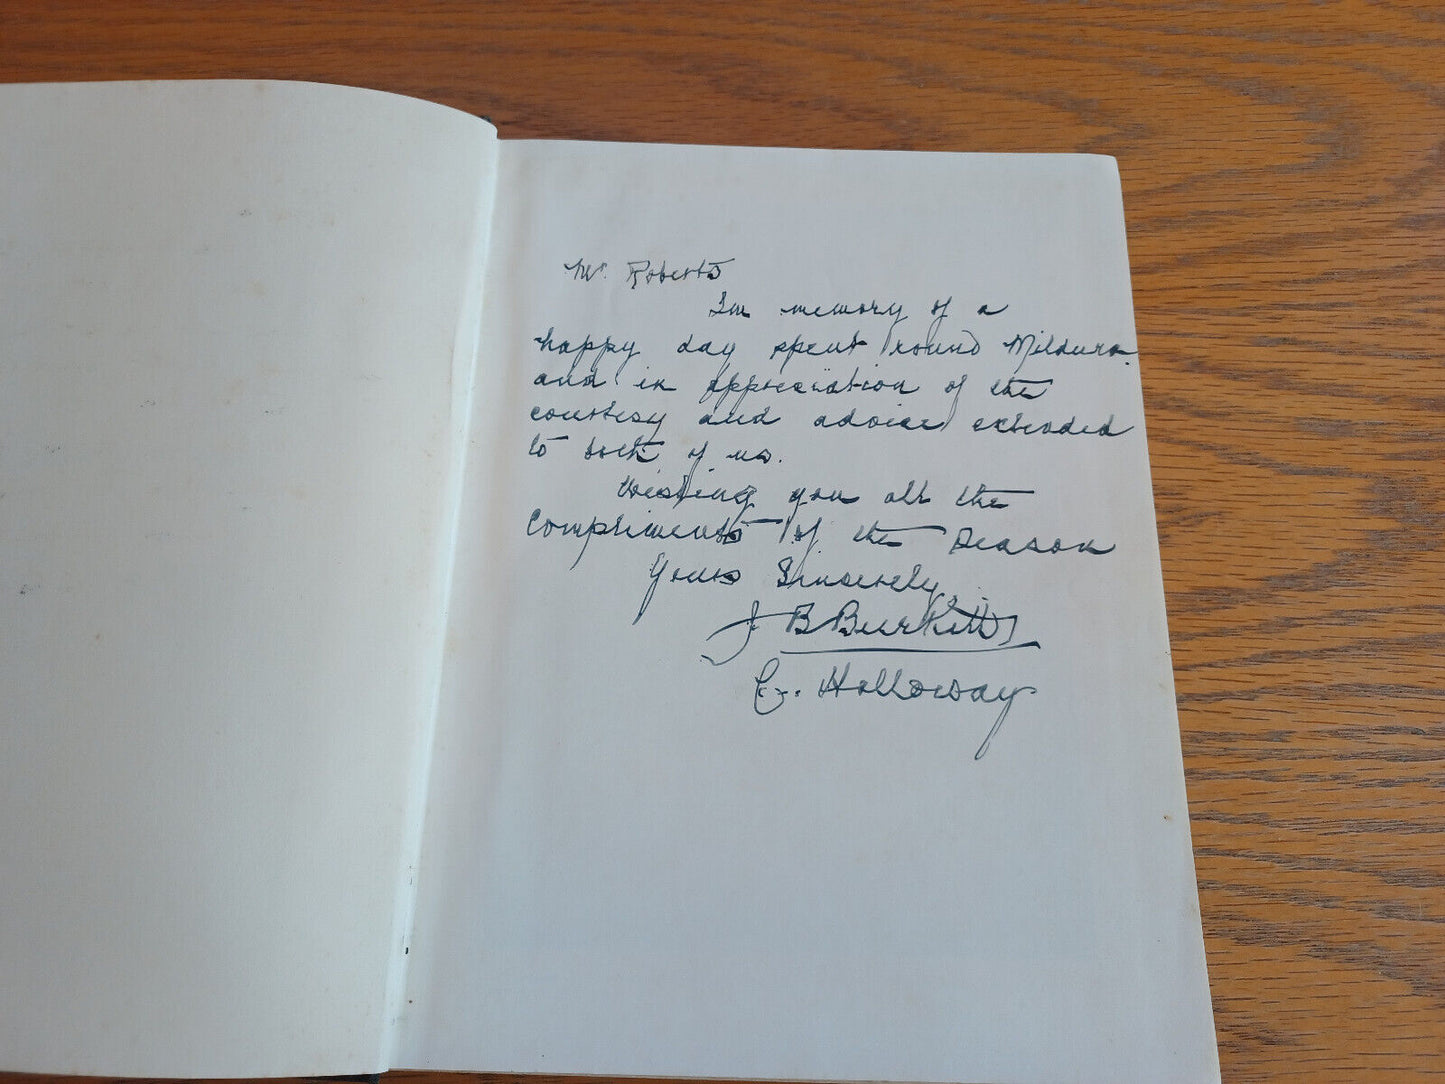 Mr. Roberts
In memory of a
happy day spent round Mildura.
and in appreciation of the
courtesy and advice extended
to both of us.
Wishing you all the
Compliments of the Season
Yours Sincerely,
J B Burkitt
Holloway